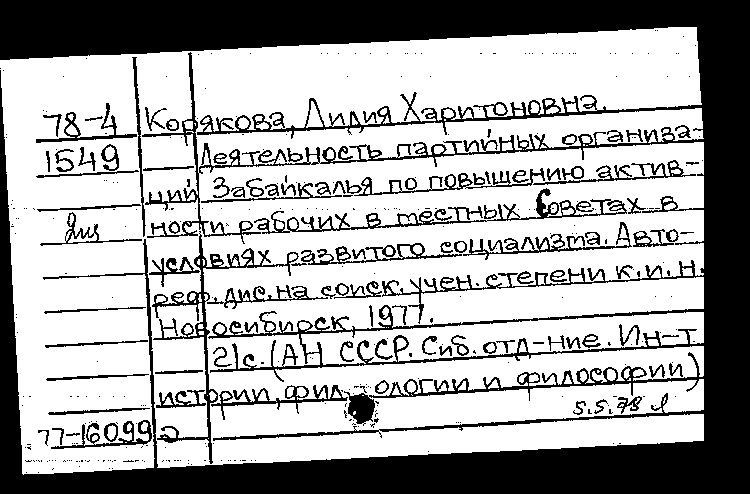 78-4 Корякова, Лидия Харитоновна.
1549 Деятельность партийных организа-
ций Забайкалья по повышению актив-
ности рабочих в местных Советах в
условиях развитого социализма. Авто-
реф. дис. на соиск. учен. степени к.и.н.
Новосибирск, 1977.
21с. (АН СССР. Сиб. отд-ние. Ин-т
истории, фил-ологии и философии)
5.5.78
77-16099